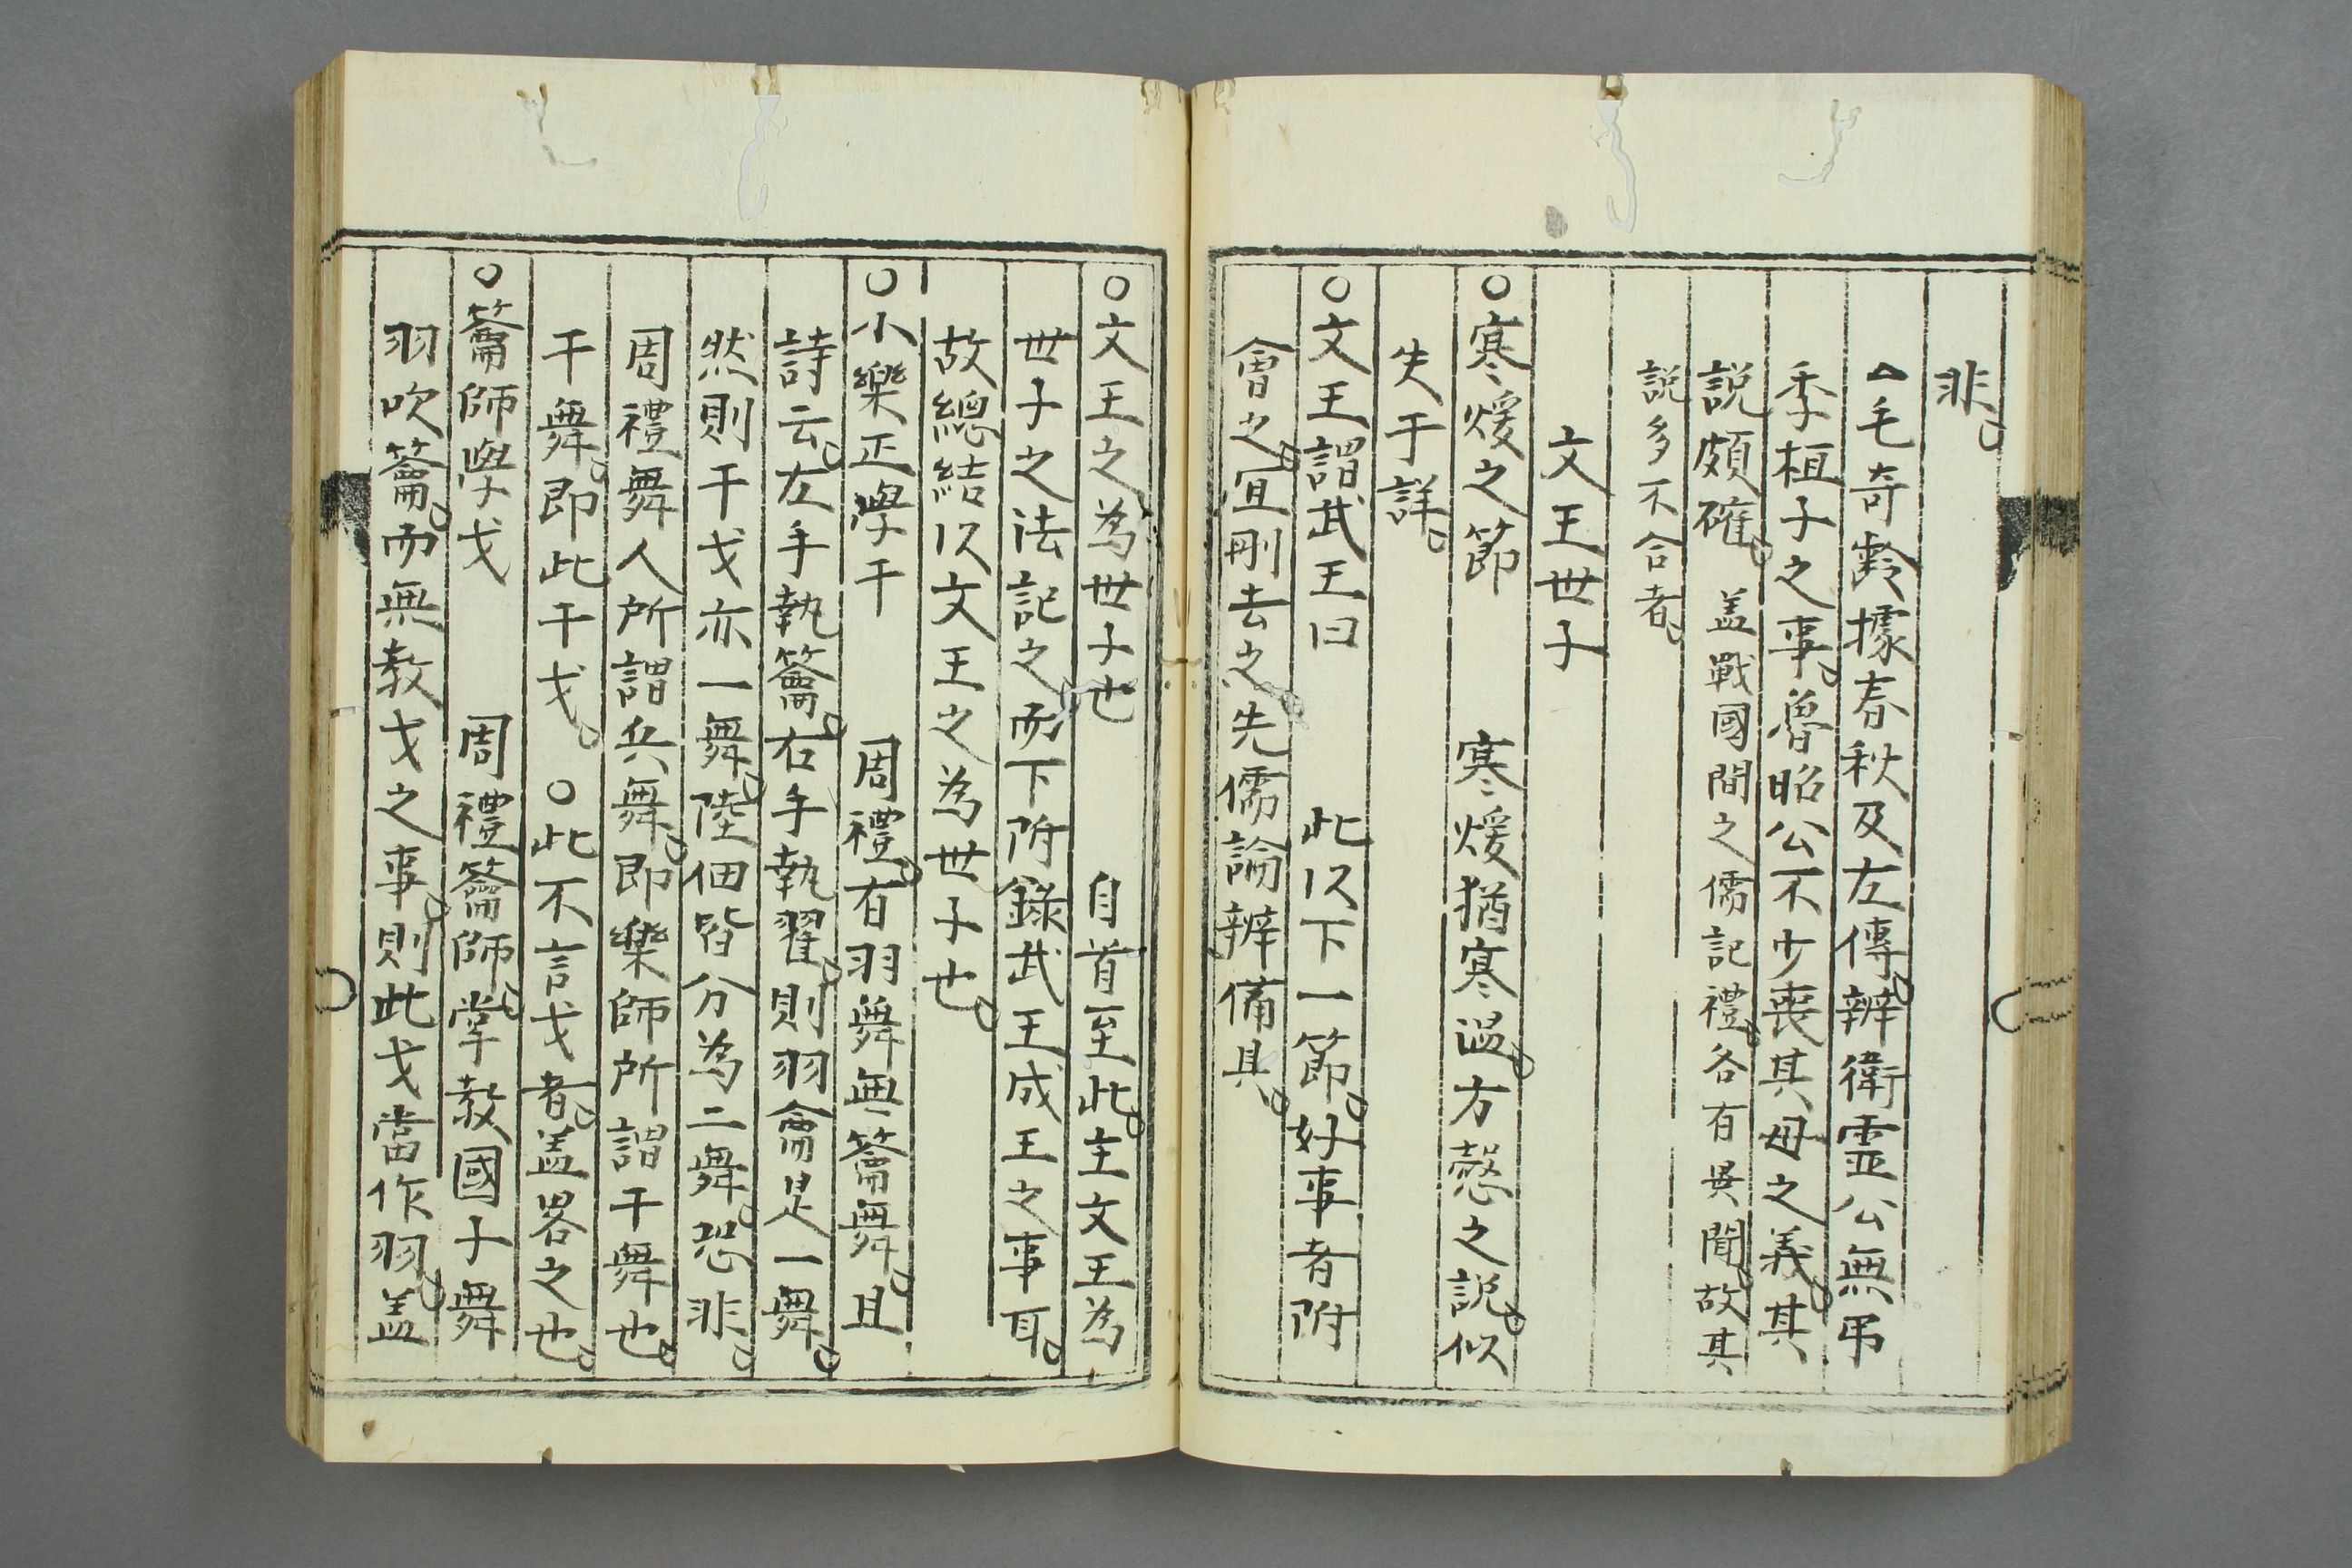 非。
△毛奇齡據春秋及左傳。辨衛靈公無弔
季桓子之事。魯昭公不少喪其母之義。其
説頗確。盖戰國間之儒記禮。各有異聞。故其
説多不合者。
文王世子
○寒煖之節 寒煖猶寒温。方慤之説。似
失于詳。
○文王謂武王曰 此以下一節。好事者附
會之。宜刪去之。先儒論辨備具。
○文王之為世子也 自首至此。主文王為
世子之法記之。而下附錄武王成王之事耳。
故總結以文王之為世子也。
○小樂正學干 周禮。有羽舞無籥舞。且
詩云。左手執籥。右手執翟。則羽龠是一舞。
然則干戈亦一舞。陸佃皆分為二舞。恐非。
周禮舞人所謂兵舞。即樂師所謂干舞也。
干舞。即此干戈。○此不言戈者。盖畧之也。
○籥師學戈 周禮籥師。掌教國子舞
羽吹籥。而無教戈之事。則此戈當作羽。盖